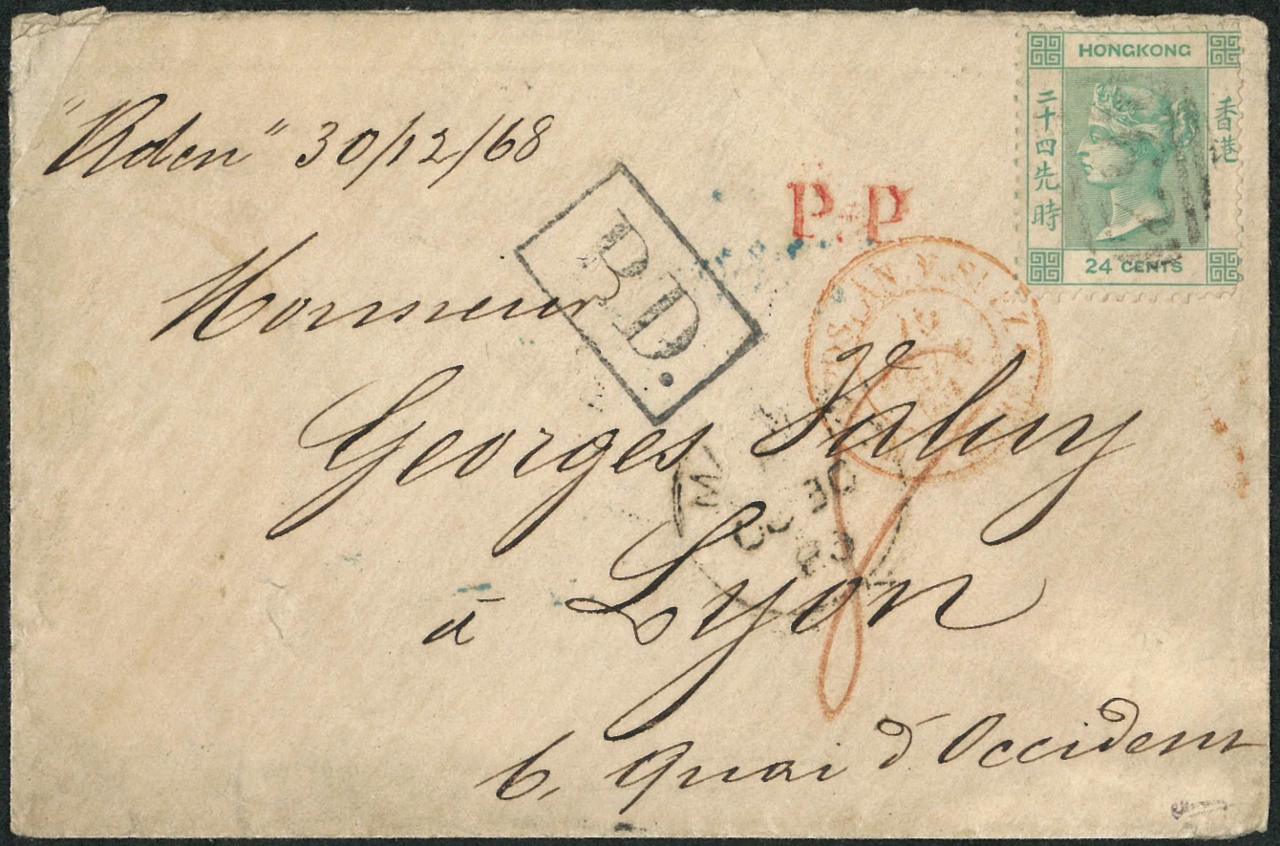 HONGKONG
二十四先時
香港
24 CENTS
"Aden" 30/12/68
P.P
P.D.
Monsieur
Georges
DE 30
à Lyon
6, Quai d'Occident